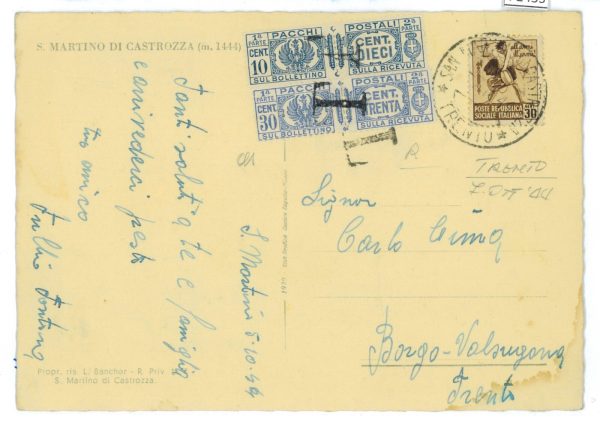 S. MARTINO DI CASTROZZA (m. 1444)
Tanti saluti a te e famiglia
e arrivederci presto
tuo amico
Tullio
S. Martino 5.10.44
Propr. ris. L. Banchor - R. Priv.
S. Martino di Castrozza.
1ª PARTE PACCHI POSTALI 2ª PARTE
CENT. 10 CENT. DIECI
SUL BOLLETTINO SULLA RICEVUTA
1ª PARTE PACCHI POSTALI 2ª PARTE
CENT. 30 CENT. TRENTA
SUL BOLLETTINO SULLA RICEVUTA
T
T
SAN
TRENTO
POSTE REPUBBLICA
SOCIALE ITALIANA
30
R
TRENTO
7. OTT '44
Signor
Carlo
Borgo-Valsugana
Trento